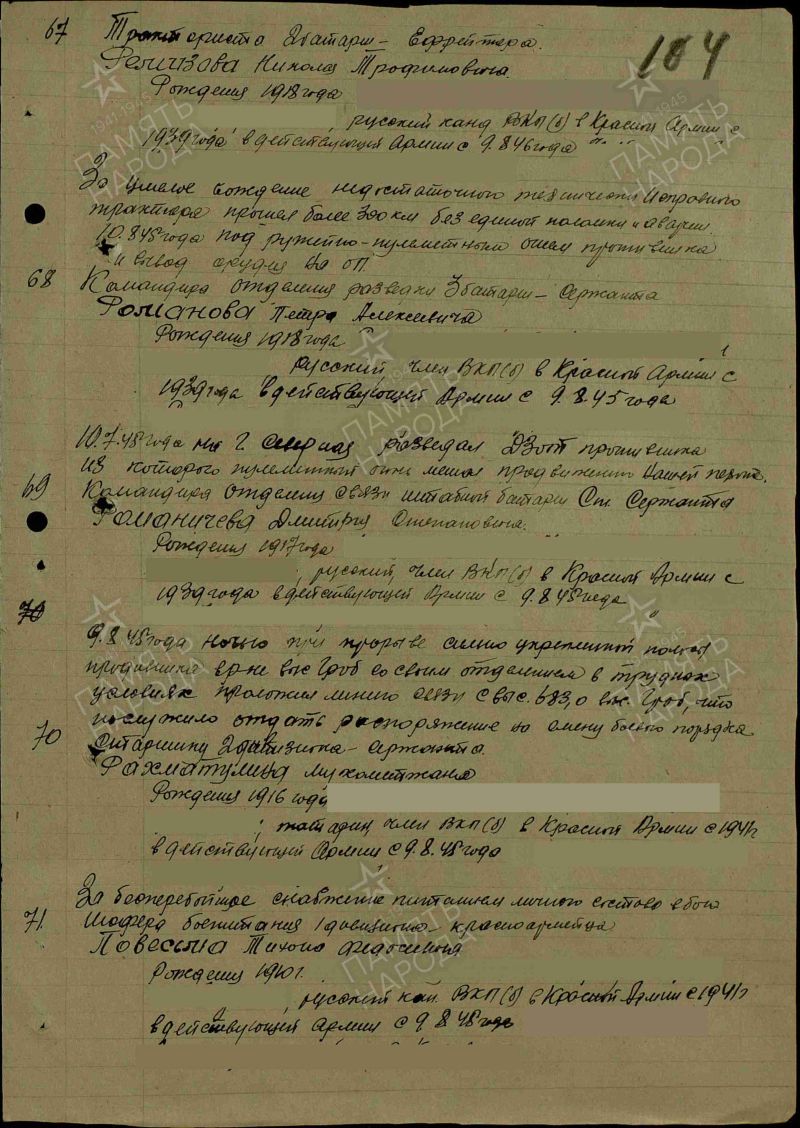 104
67 Тракториста 2батареи – Ефрейтора.
Николая Трофимовича.
Рождения 1918 года
русский канд ВКП(б) в Красной Армии с
1939 года в действующей Армии с 9.8.45 года
За умелое вождение недостаточного технически исправного
трактора прошел более 300 км без единой поломки и аварии.
10.8.45 года под ружейно-пулеметным огнем противника
и вывод орудия на оп.
68 Командира отделения разведки 3батареи – Сержанта
Романова Петра Алексеевича
Рождения 1918 года
русский, член ВКП(б) в Красной Армии с
1939 года в действующей Армии с 9.8.45 года
на г. разведал Дзот противника
из которого пулеметный огонь мешал продвижению нашей пехоты.
69 Командира отделения связи штабной батареи Ст. Сержанта
Романичева Дмитрия Степановича.
Рождения 1917 года
русский, член ВКП(б) в Красной Армии с
1939 года в действующей Армии с 9.8.45 года
70
9.8.45 года ночью при прорыве сильно укрепленной полосы
противника выс. Гроб со своим отделением в трудных
условиях проложил линию связи с выс. 683,0 выс. Гроб, что
послужило отдать распоряжение на смену боевого порядка
70 Старшину 2дивизиона – сержанта.
Рахматулина Мухометжана
Рождения 1916 года
татарин, член ВКП(б) в Красной Армии с 1941г
в действующей Армии с 9.8.45 года
За бесперебойное снабжение питанием личного состава в бою
71. Шофера боепитания 1дивизиона – красноармейца
Тихона Федосеевича
Рождения
русский кан. ВКП(б) в Красной Армии с 1941г
в действующей армии с 9.8.45 года
ПАМЯТЬ НАРОДА
1941-1945